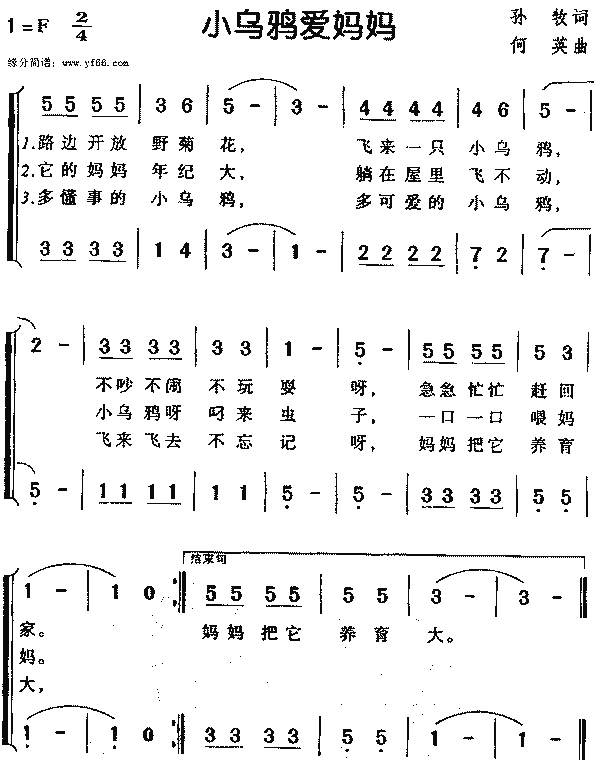 小乌鸦爱妈妈
1=F 2/4
孙 牧词
何 英曲
缘分简谱: www.yf66.com
5 5 5 5 | 3 6 | 5 - | 3 - | 4 4 4 4 | 4 6 | 5 - |
1.路边开放 野菊 花， 飞来一只 小乌 鸦，
2.它的妈妈 年纪 大， 躺在屋里 飞不 动，
3.多懂事的 小乌 鸦， 多可爱的 小乌 鸦，
3 3 3 3 | 1 4 | 3 - | 1 - | 2 2 2 2 | 7 2 | 7 - |
2 - | 3 3 3 3 | 3 3 | 1 - | 5 - | 5 5 5 5 | 5 3 |
不吵不闹 不玩 耍 呀， 急急忙忙 赶回
小乌鸦呀 叼来 虫 子， 一口一口 喂妈
飞来飞去 不忘 记 呀， 妈妈把它 养育
5 - | 1 1 1 1 | 1 1 | 5 - | 5 - | 3 3 3 3 | 5 5 |
结束句
1 - | 1 0 :| 5 5 5 5 | 5 5 | 3 - | 3 - |
家。 妈妈把它 养育 大。
妈。
大，
1 - | 1 0 :| 3 3 3 3 | 5 5 | 1 - | 1 - |